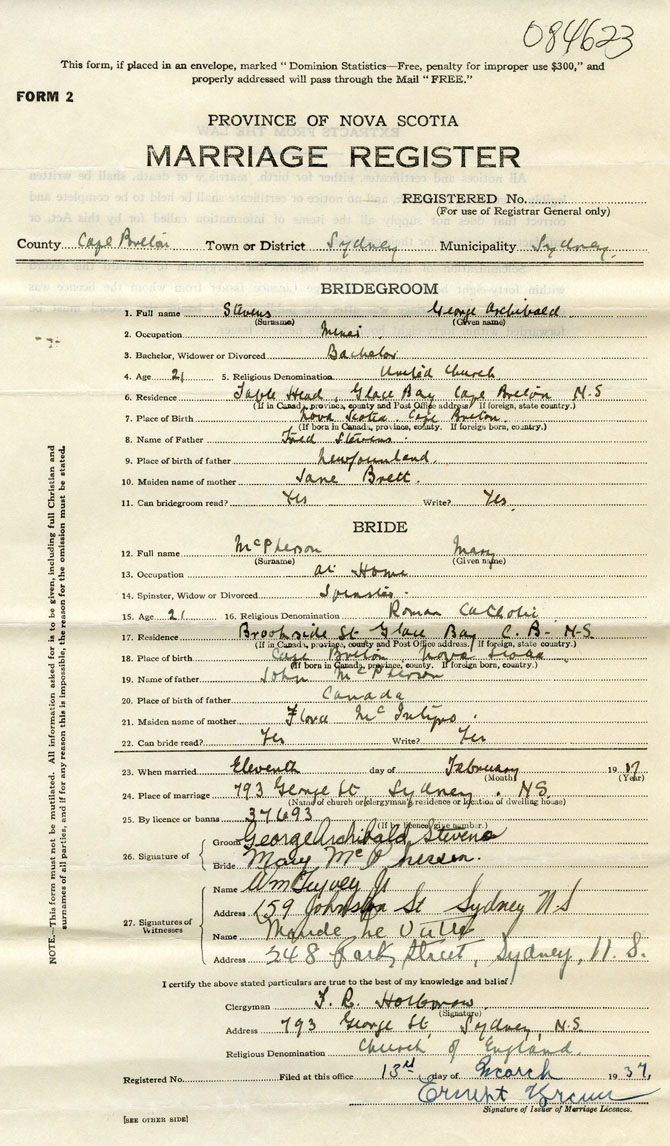 084623
This form, if placed in an envelope, marked "Dominion Statistics—Free, penalty for improper use $300," and
properly addressed will pass through the Mail "FREE."
FORM 2
PROVINCE OF NOVA SCOTIA
MARRIAGE REGISTER
REGISTERED No.
(For use of Registrar General only)
County Cape Breton Town or District Sydney Municipality Sydney.
BRIDEGROOM
1. Full name Stevens George Archibald
(Surname) (Given name)
2. Occupation Miner
3. Bachelor, Widower or Divorced Bachelor
4. Age 21 5. Religious Denomination United Church
6. Residence Table Head, Glace Bay Cape Breton N.S
(If in Canada, province, county and Post Office address. If foreign, state country.)
7. Place of Birth Nova Scotia. Cape Breton.
(If born in Canada, province, county. If foreign born, country.)
8. Name of Father Stevens.
9. Place of birth of father Newfoundland.
10. Maiden name of mother Jane Brett.
11. Can bridegroom read? Yes Write? Yes.
BRIDE
12. Full name McPherson Mary
(Surname) (Given name)
13. Occupation At Home
14. Spinster, Widow or Divorced Spinster.
15. Age 21 16. Religious Denomination Roman Catholic
17. Residence Brookside St Glace Bay C.B. N.S.
(If in Canada, province, county and Post Office address. If foreign, state country.)
18. Place of birth Cape Breton Nova Scotia
(If born in Canada, province, county. If foreign born, country.)
19. Name of father John McPherson
20. Place of birth of father Canada
21. Maiden name of mother Flora McIntyre.
22. Can bride read? Yes Write? Yes
23. When married Eleventh day of February 1937
(Month) (Year)
24. Place of marriage 793 George St Sydney. N.S.
(Name of church or clergyman's residence or location of dwelling house)
25. By licence or banns 37693
(If by licence, give number.)
26. Signature of Groom George Archibald Stevens
Bride Mary McPherson.
27. Signatures of Witnesses
Name Wm Jr
Address 159 Johnston St Sydney N S
Name Maude Le
Address 248 Park Street, Sydney, N. S.
I certify the above stated particulars are true to the best of my knowledge and belief.
Clergyman
(Signature)
Address 793 George St, Sydney, N.S.
Religious Denomination Church of England.
Registered No. Filed at this office 13 day of March 1937,
Ernest
Signature of Issuer of Marriage Licences.
[SEE OTHER SIDE]
NOTE.—This form must not be mutilated. All information asked for is to be given, including full Christian and
surnames of all parties, and if for any reason this is impossible, the reason for the omission must be stated.